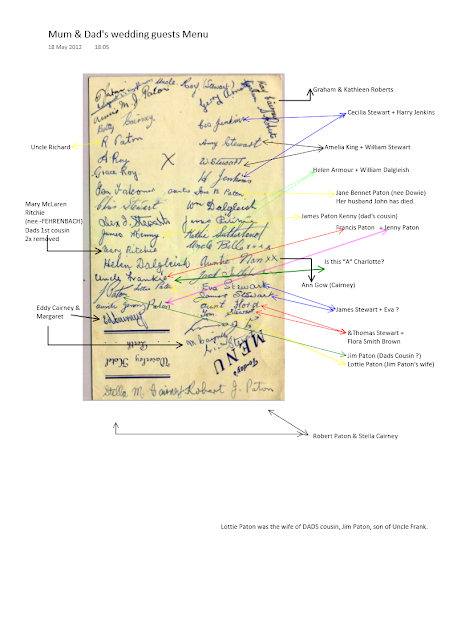 Mum & Dad's wedding guests Menu
18 May 2012 18:05
Graham & Kathleen Roberts
Cecilia Stewart + Harry Jenkins
Uncle Richard
Amelia King + William Stewart
Helen Armour + William Dalgleish
Jane Bennet Paton (nee Dowie)
Her husband John has died.
Mary McLaren
Ritchie
(nee -FEHRENBACH)
Dads 1st cousin
2x removed
James Paton Kenny (dad's cousin)
Francis Paton = Jenny Paton
Is this "A" Charlotte?
Ann Gow (Cairney)
Eddy Cairney &
Margaret
James Stewart + Eva ?
&Thomas Stewart +
Flora Smith Brown
Jim Paton (Dads Cousin ?)
Lottie Paton (Jim Paton's wife)
Annie M. J. Paton
Betty Cairney
Eva Jenkins
R Paton
Amy Stewart
A Roy
W Stewart
Grace Roy
H Jenkins
Jean Falconer
Wm Dalgleish
James Kenny
Nettie Sutherland
Mary Ritchie
Uncle Bill xxxx
Helen Dalgleish
Auntie Nan xx
Uncle Frankie
Eva Stewart
Lottie Paton
James Stewart
Auntie Jenny Paton
Tom Stewart
Today's
MENU
Waverley Hotel
Perth
Stella M. Cairney
Robert J. Paton
Robert Paton & Stella Cairney
Lottie Paton was the wife of DADS cousin, Jim Paton, son of Uncle Frank.